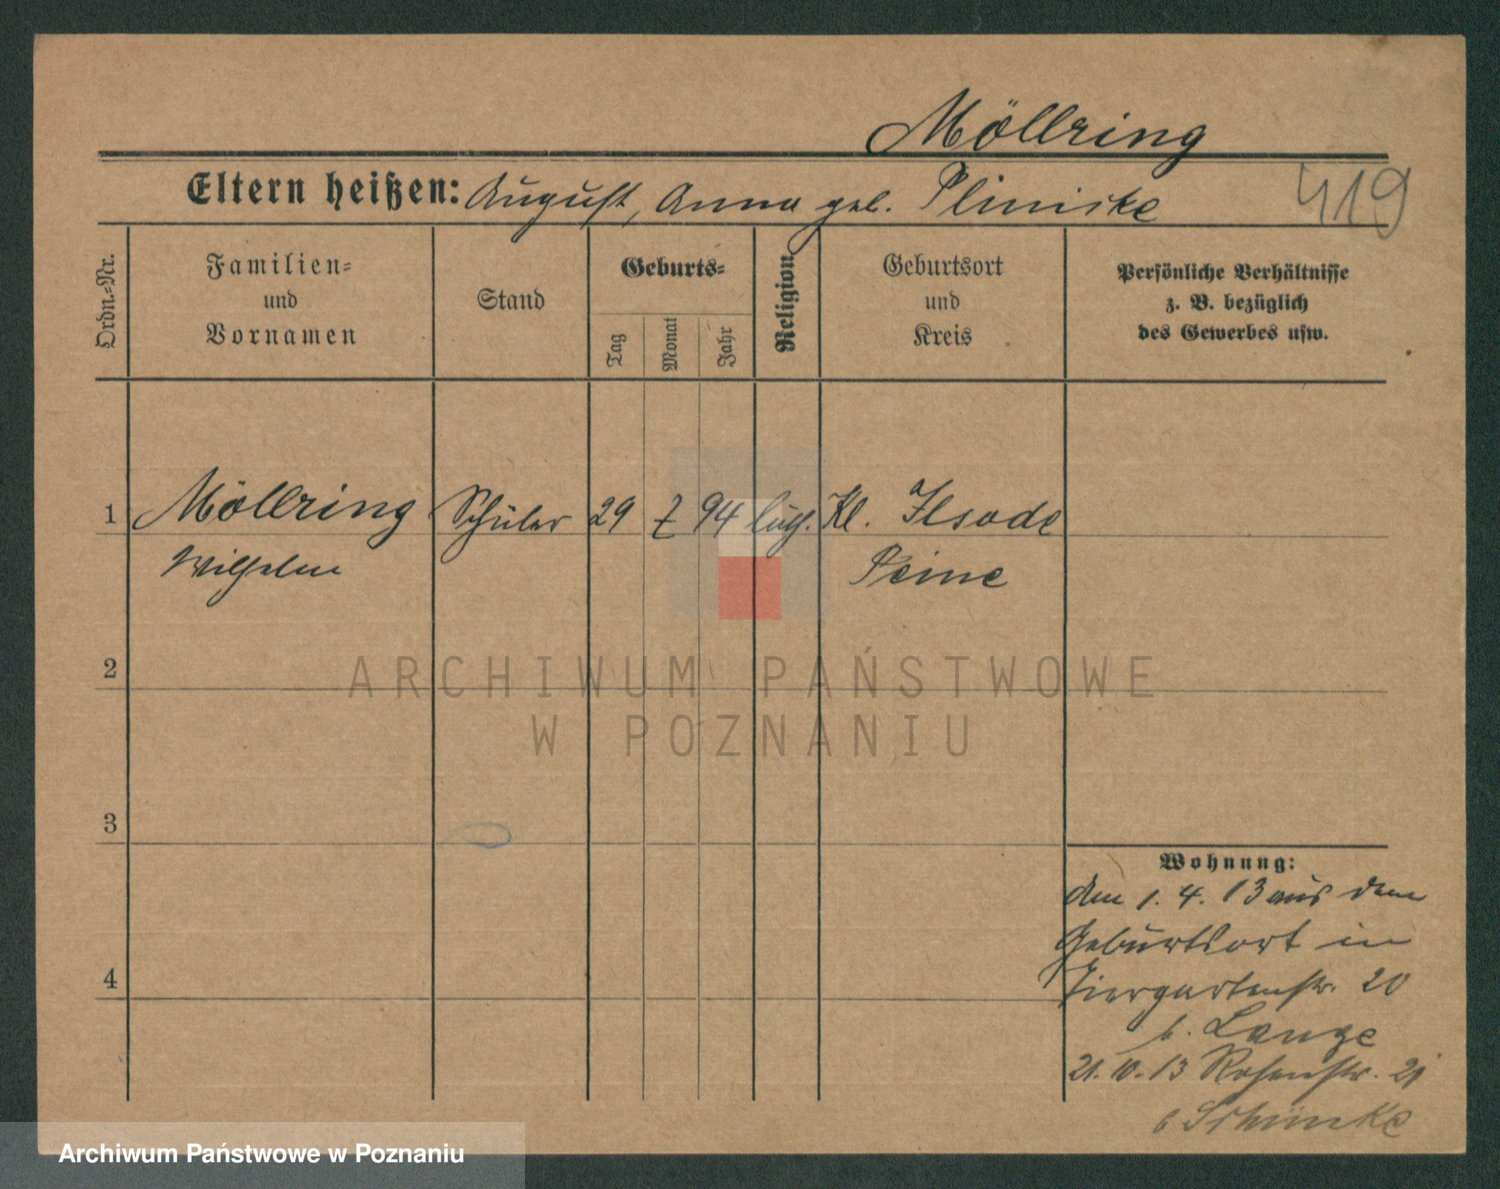 Möllring
Eltern heißen: August, Anna geb. Pliniske
419
Ordn.-Nr.
Familien-
und
Vornamen
Stand
Geburts-
Tag
Monat
Jahr
Religion
Geburtsort
und
Kreis
Persönliche Verhältnisse
z. B. bezüglich
des Gewerbes usw.
1 Möllring Schüler 29 7 94 luth. Kl. Ilsede
Wilhelm Peine
2
ARCHIWUM PAŃSTWOWE
W POZNANIU
3
Wohnung:
den 1. 4. 13 aus dem
Geburtsort in
4
Tiergartenstr. 20
b. Lange
21. 10. 13 Rosenstr. 21
b Schünke
Archiwum Państwowe w Poznaniu